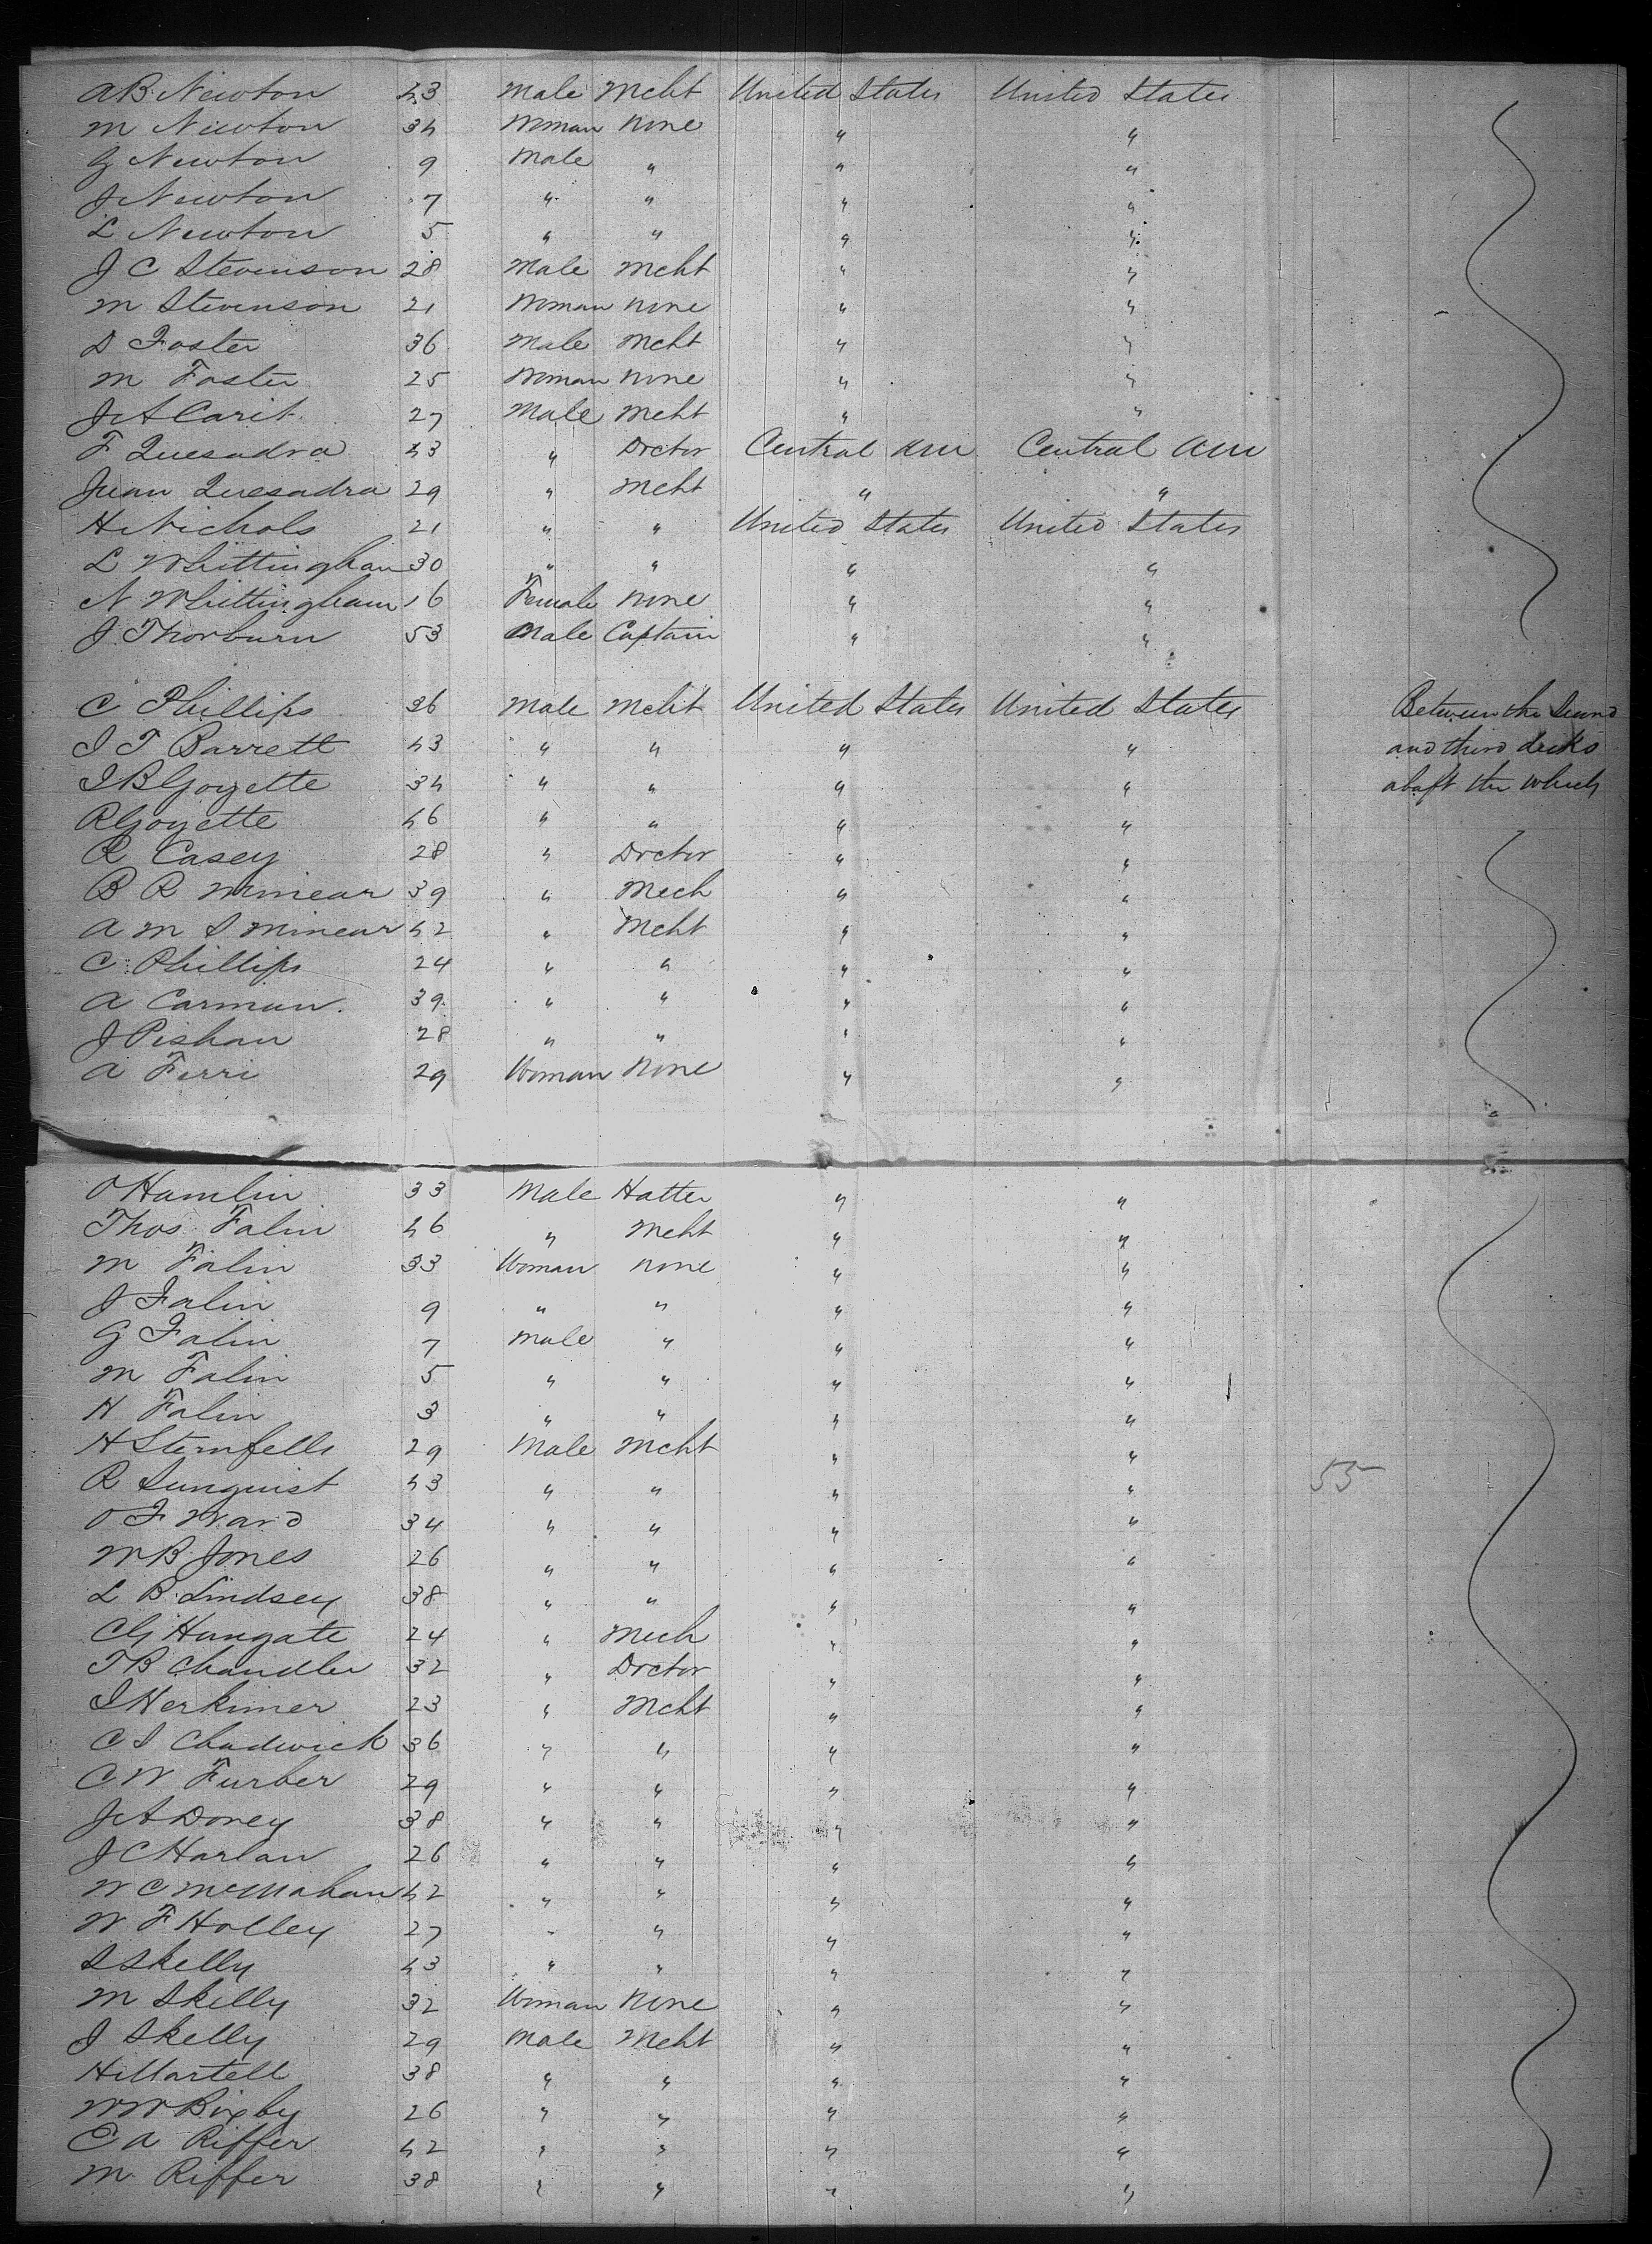 A B Newton 43 Male Mcht United States United States
M Newton 34 Woman None " "
G Newton 9 Male " " "
J Newton 7 " " " "
L Newton 5 " " " "
J C Stevenson 28 Male Mcht " "
M Stevenson 21 Woman None " "
D Foster 36 Male Mcht " "
M Foster 25 Woman None " "
J A Carit 27 Male Mcht " "
F Quesadra 43 " Doctor Central Am Central Am
Juan Quesadra 29 " Mcht " "
H Nichols 21 " " United States United States
L Whittingham 30 " " " "
N Whittingham 16 Female None " "
J Thorburn 53 Male Captain " "
C Phillips 36 Male Mcht United States United States Between the Second
I T Barrett 43 " " " " and third decks
I B Goyette 34 " " " " abaft the wheels
R Goyette 46 " " " "
R Casey 28 " Doctor " "
B R Minear 39 " Mech " "
A M S Minear 42 " Mcht " "
C Phillips 24 " " " "
A Carman 39 " " " "
J Pishan 28 " " " "
A Ferri 29 Woman None " "
O Hamlin 33 Male Hatter " "
Thos Falin 46 " Mcht " "
M Falin 33 Woman None " "
J Falin 9 " " " "
G Falin 7 Male " " "
M Falin 5 " " " "
H Falin 3 " " " "
H Sternfells 29 Male Mcht " "
R Sunquist 43 " " " " 55
O F Ward 34 " " " "
W B Jones 26 " " " "
L B Lindsey 38 " " " "
C G Hungate 24 " Mech " "
T B Chandler 32 " Doctor " "
I Herkimer 23 " Mcht " "
C S Chadwick 36 " " " "
C W Furber 29 " " " "
J A Dorey 38 " " " "
J C Harlan 26 " " " "
W C McMahan 42 " " " "
W F Holley 27 " " " "
S Skelly 43 " " " "
M Skelly 32 Woman None " "
J Skelly 29 Male Mcht " "
H Martell 38 " " " "
W W Bixby 26 " " " "
E A Riffer 42 " " " "
M Riffer 38 " " " "